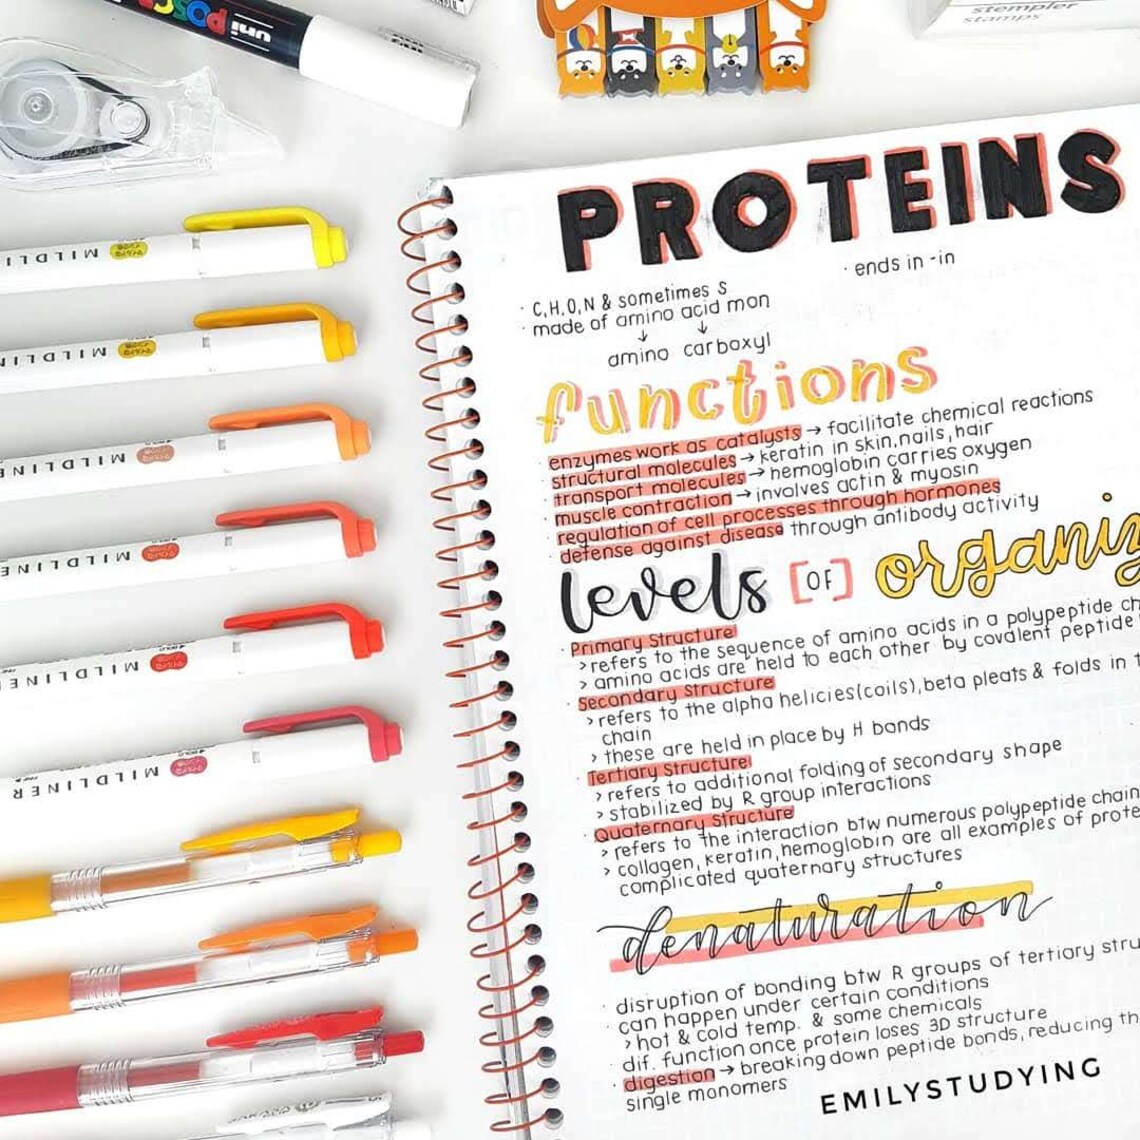 uni POSCA
stempler
stamps
PROTEINS
· ends in -in
· C,H,O,N & sometimes S
· made of amino acid mon
amino carboxyl
functions
· enzymes work as catalysts → facilitate chemical reactions
· structural molecules → keratin in skin, nails, hair
· transport molecules → hemoglobin carries oxygen
· muscle contraction → involves actin & myosin
· regulation of cell processes through hormones
· defense against disease through antibody activity
levels [OF] organiz
· Primary Structure
> refers to the sequence of amino acids in a polypeptide ch
> amino acids are held to each other by covalent peptide
· Secondary Structure
> refers to the alpha helicies(coils), beta pleats & folds in t
chain
> these are held in place by H bonds
· Tertiary Structure
> refers to additional folding of secondary shape
> stabilized by R group interactions
· Quaternary Structure
> refers to the interaction btw numerous polypeptide chain
> collagen, keratin, hemoglobin are all examples of prote
complicated quaternary structures
denaturation
· disruption of bonding btw R groups of tertiary stru
· can happen under certain conditions
> hot & cold temp. & some chemicals
· dif. function once protein loses 3D structure
· digestion → breaking down peptide bonds, reducing th
single monomers
EMILYSTUDYING
MILDL
MILDLIN
MILDLINER
MILDLINER
MILDLINER
MILDLINER